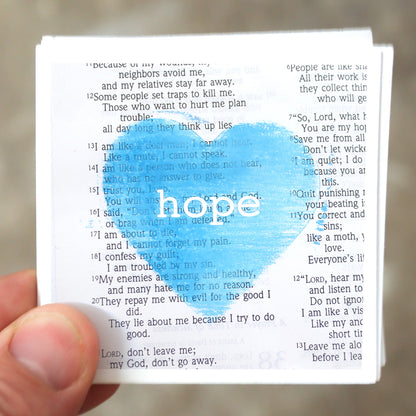 11Because of my wounds, my
neighbors avoid me,
and my relatives stay far away.
12Some people set traps to kill me.
Those who want to hurt me plan
trouble;
all day long they think up lies.
13I am like a deaf man; I cannot hear.
Like a mute, I cannot speak.
14I am like a person who does not hear,
who has no answer to give.
15I trust you, Lord
You will answer, my Lord and God.
16I said, "Don't let them
or brag when I am defeated.
17I am about to die,
and I cannot forget my pain.
18I confess my guilt;
I am troubled by my sin.
19My enemies are strong and healthy,
and many hate me for no reason.
20They repay me with evil for the good I
did.
They lie about me because I try to do
good.
LORD, don't leave me;
my God, don't go away.
hope
6People are like sha
All their work is
they collect thin
who will ge
7"So, Lord, what h
You are my ho
8Save me from all
Don't let wicke
9I am quiet; I do
because you a
this.
10Quit punishing
your beating i
11You correct and
sins;
like a moth, y
love.
Everyone's li
12"LORD, hear my
and listen to
Do not ignor
I am like a vis
Like my anc
short tim
13Leave me alo
before I lea
38